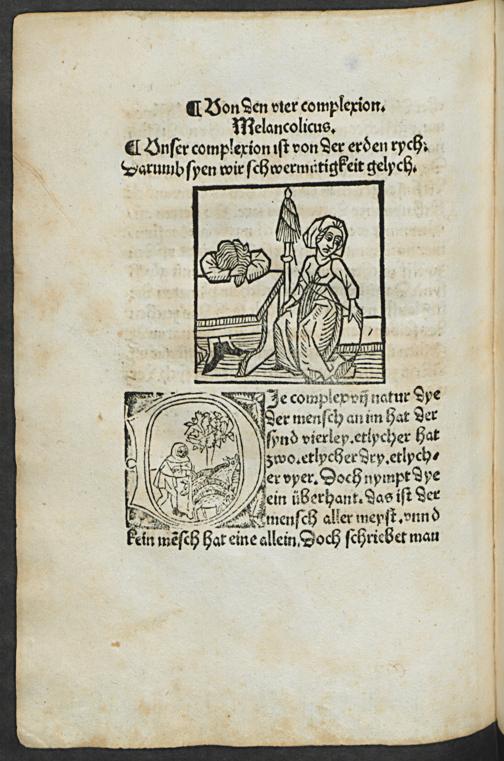 ¶ Von den vier complexion.
Melancolicus.
¶ Unser complexion ist von der erden rych:
Darumb syen wir schwermütigkeit gelych.
Die complexion natur dye
der mensch an im hat der
synd vierley. etlycher hat
zwo. etlycher dry. etlych-
er vyer. Doch nympt dye
ein überhant. das ist der
mensch aller meyst. vnnd
kein mēsch hat eine allein. Doch schriebet man